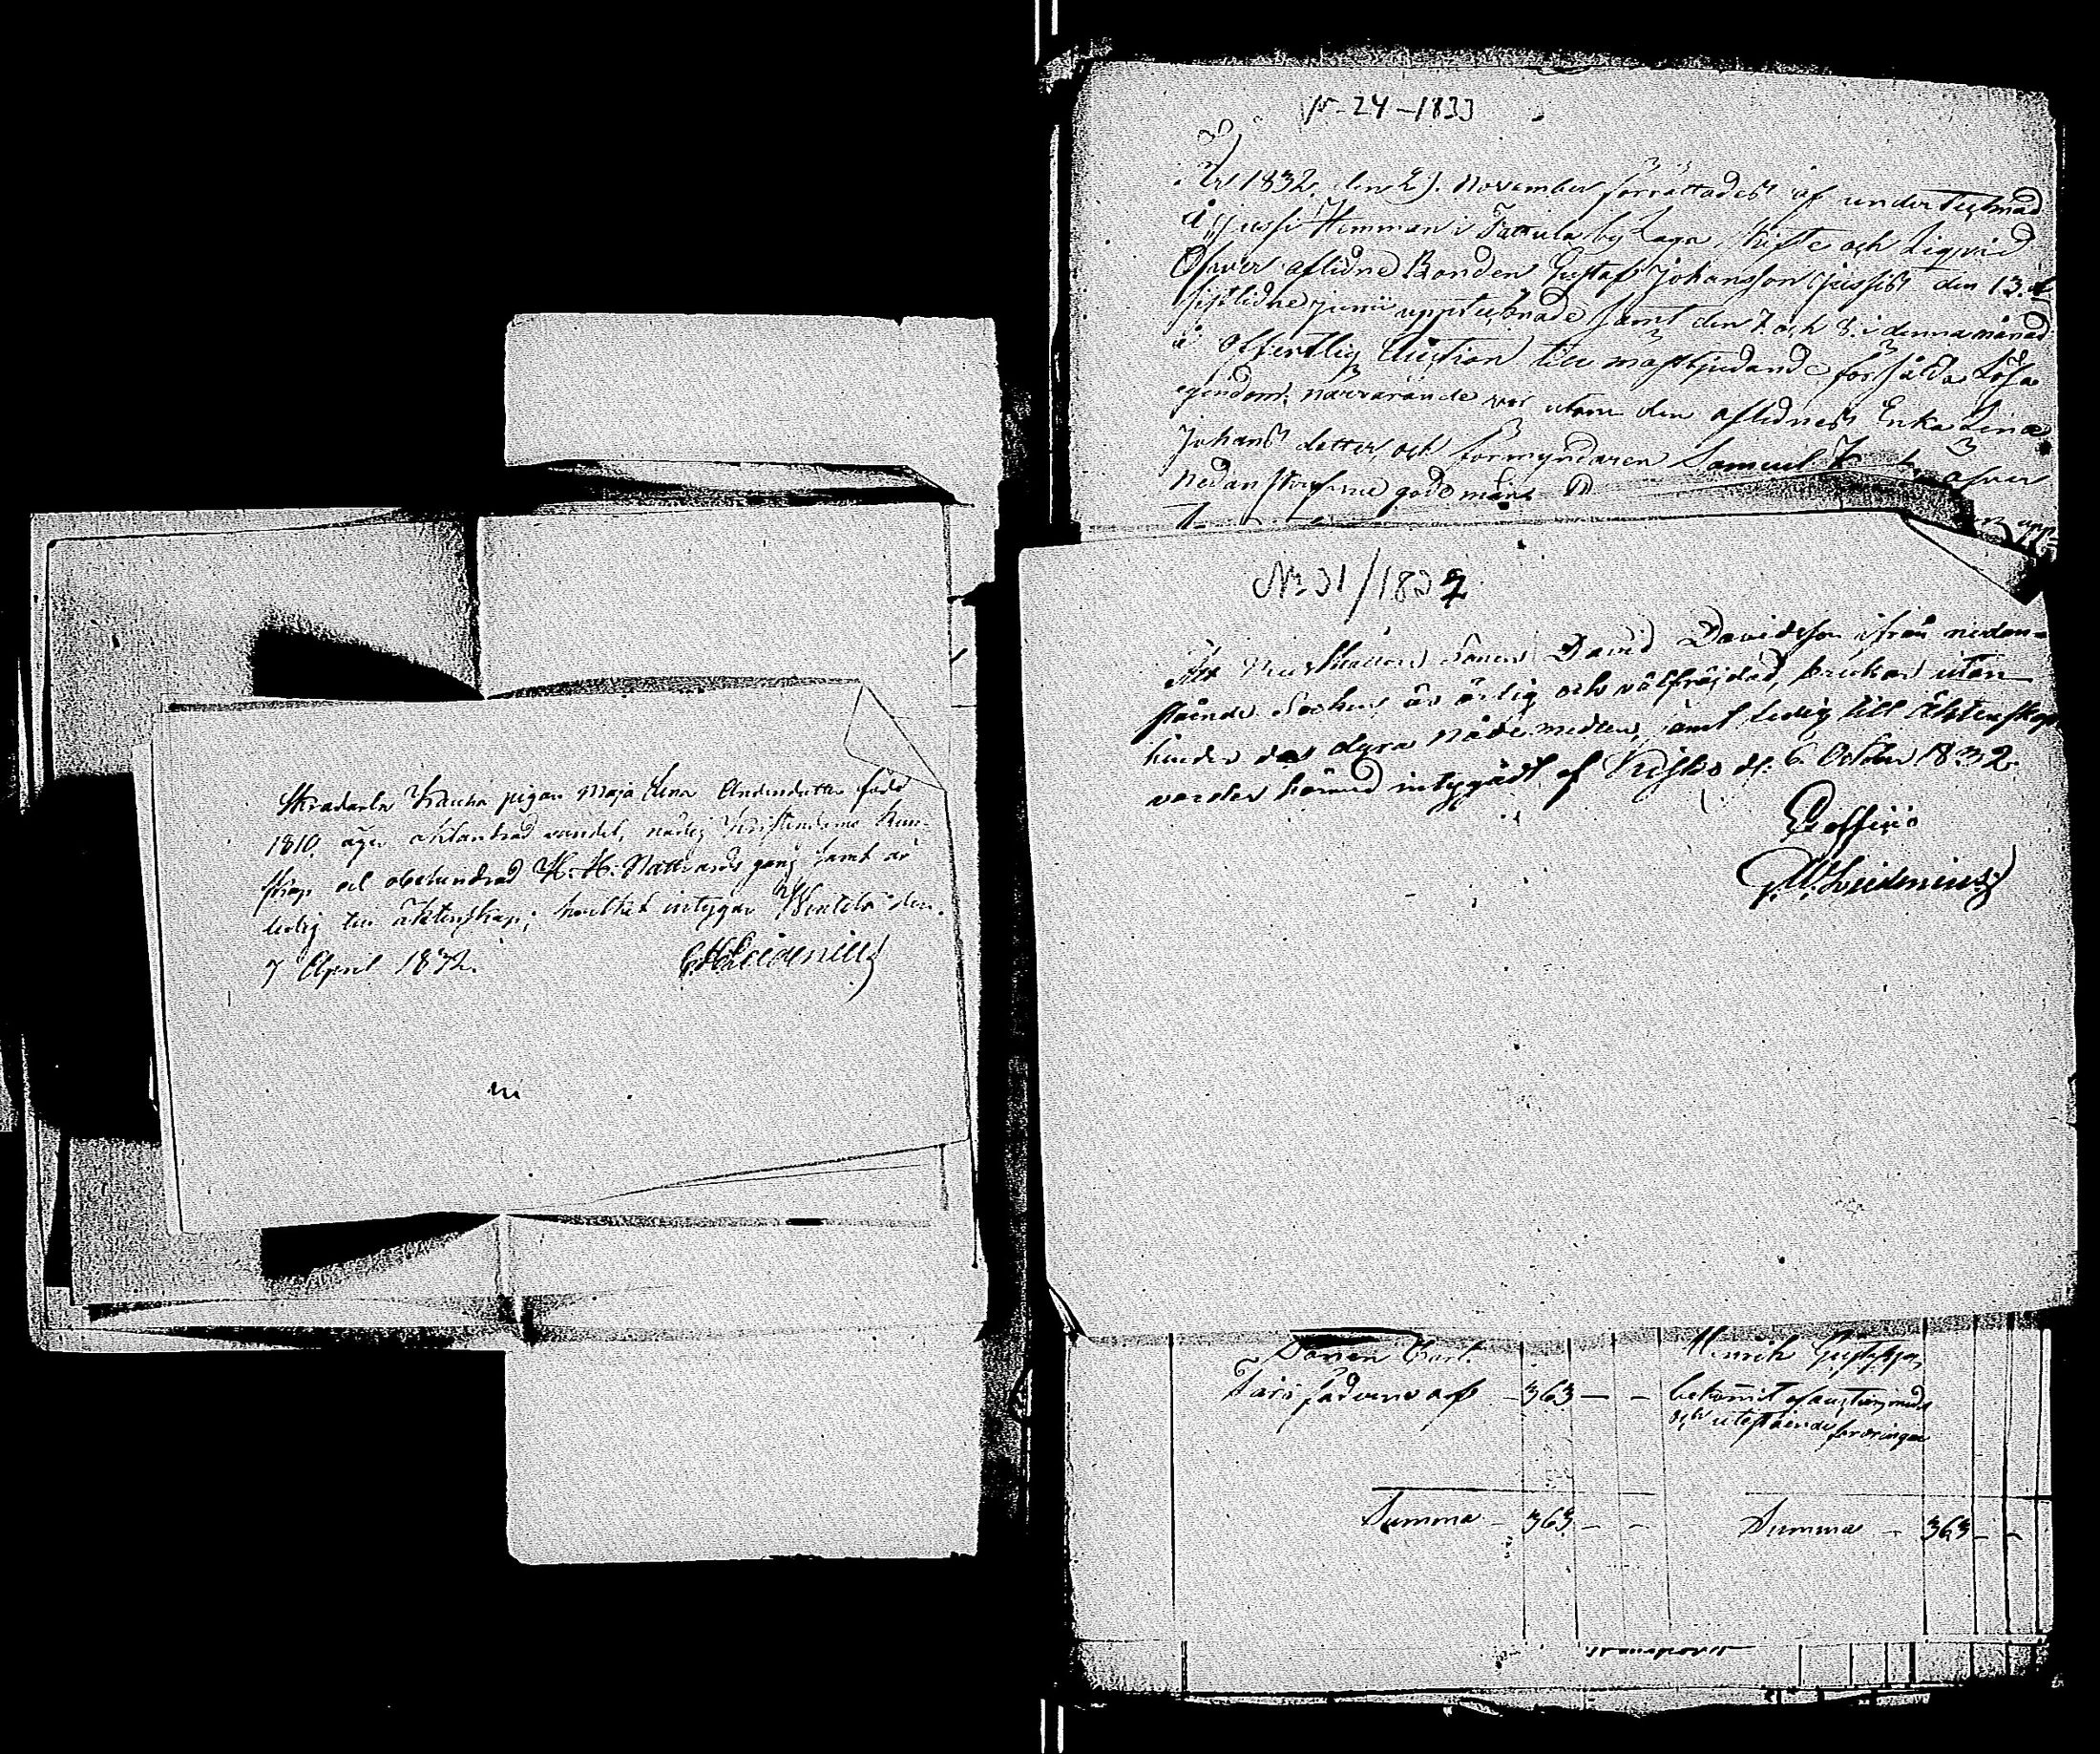 Skradarla Kaisha pigan Maja Lena Andersdotter född
1810, äger oklandrad vandel, nödig Kristendoms kun-
skap och obehindrad H. H. Nattvards gång samt är
ledig till äktenskap; hvilket intygar den
7 April 1832.
N 24-1833
År 1832 den 2). November förrättades af undertecknad
å Jussi Hemman i Tattula by Laga skifte och Liqvid
öfver aflidne Bonden Gustaf Johansson Jussis den 13.
sistlidne junii upptecknade samt den 7. och 8. i denna månad
å offentlig Auction till mästbjudande försålda Lösa
egendom, närvarande var utom den aflidnes Enka Lena
Johans dotter, och förmyndaren Samuel öfver
Nedanskrefne gode män
upp
No 31/1832
Att Sonen David Davidsson ifrån nedan-
stående Socken är ärlig och välfrejdad, brukar utan
hinder de dyra nådemedlen, samt ledig till Äktenskap,
varder härmed intygadt af d. 6 October 1832.
Ex officio
Sonen Carl.
Fars fädernes arf - 363 - -
Henrik Gustafsson
bekommit af auctions medel
och utestående fordringar
Summa - 363 - - Summa - 363 - -
Transport